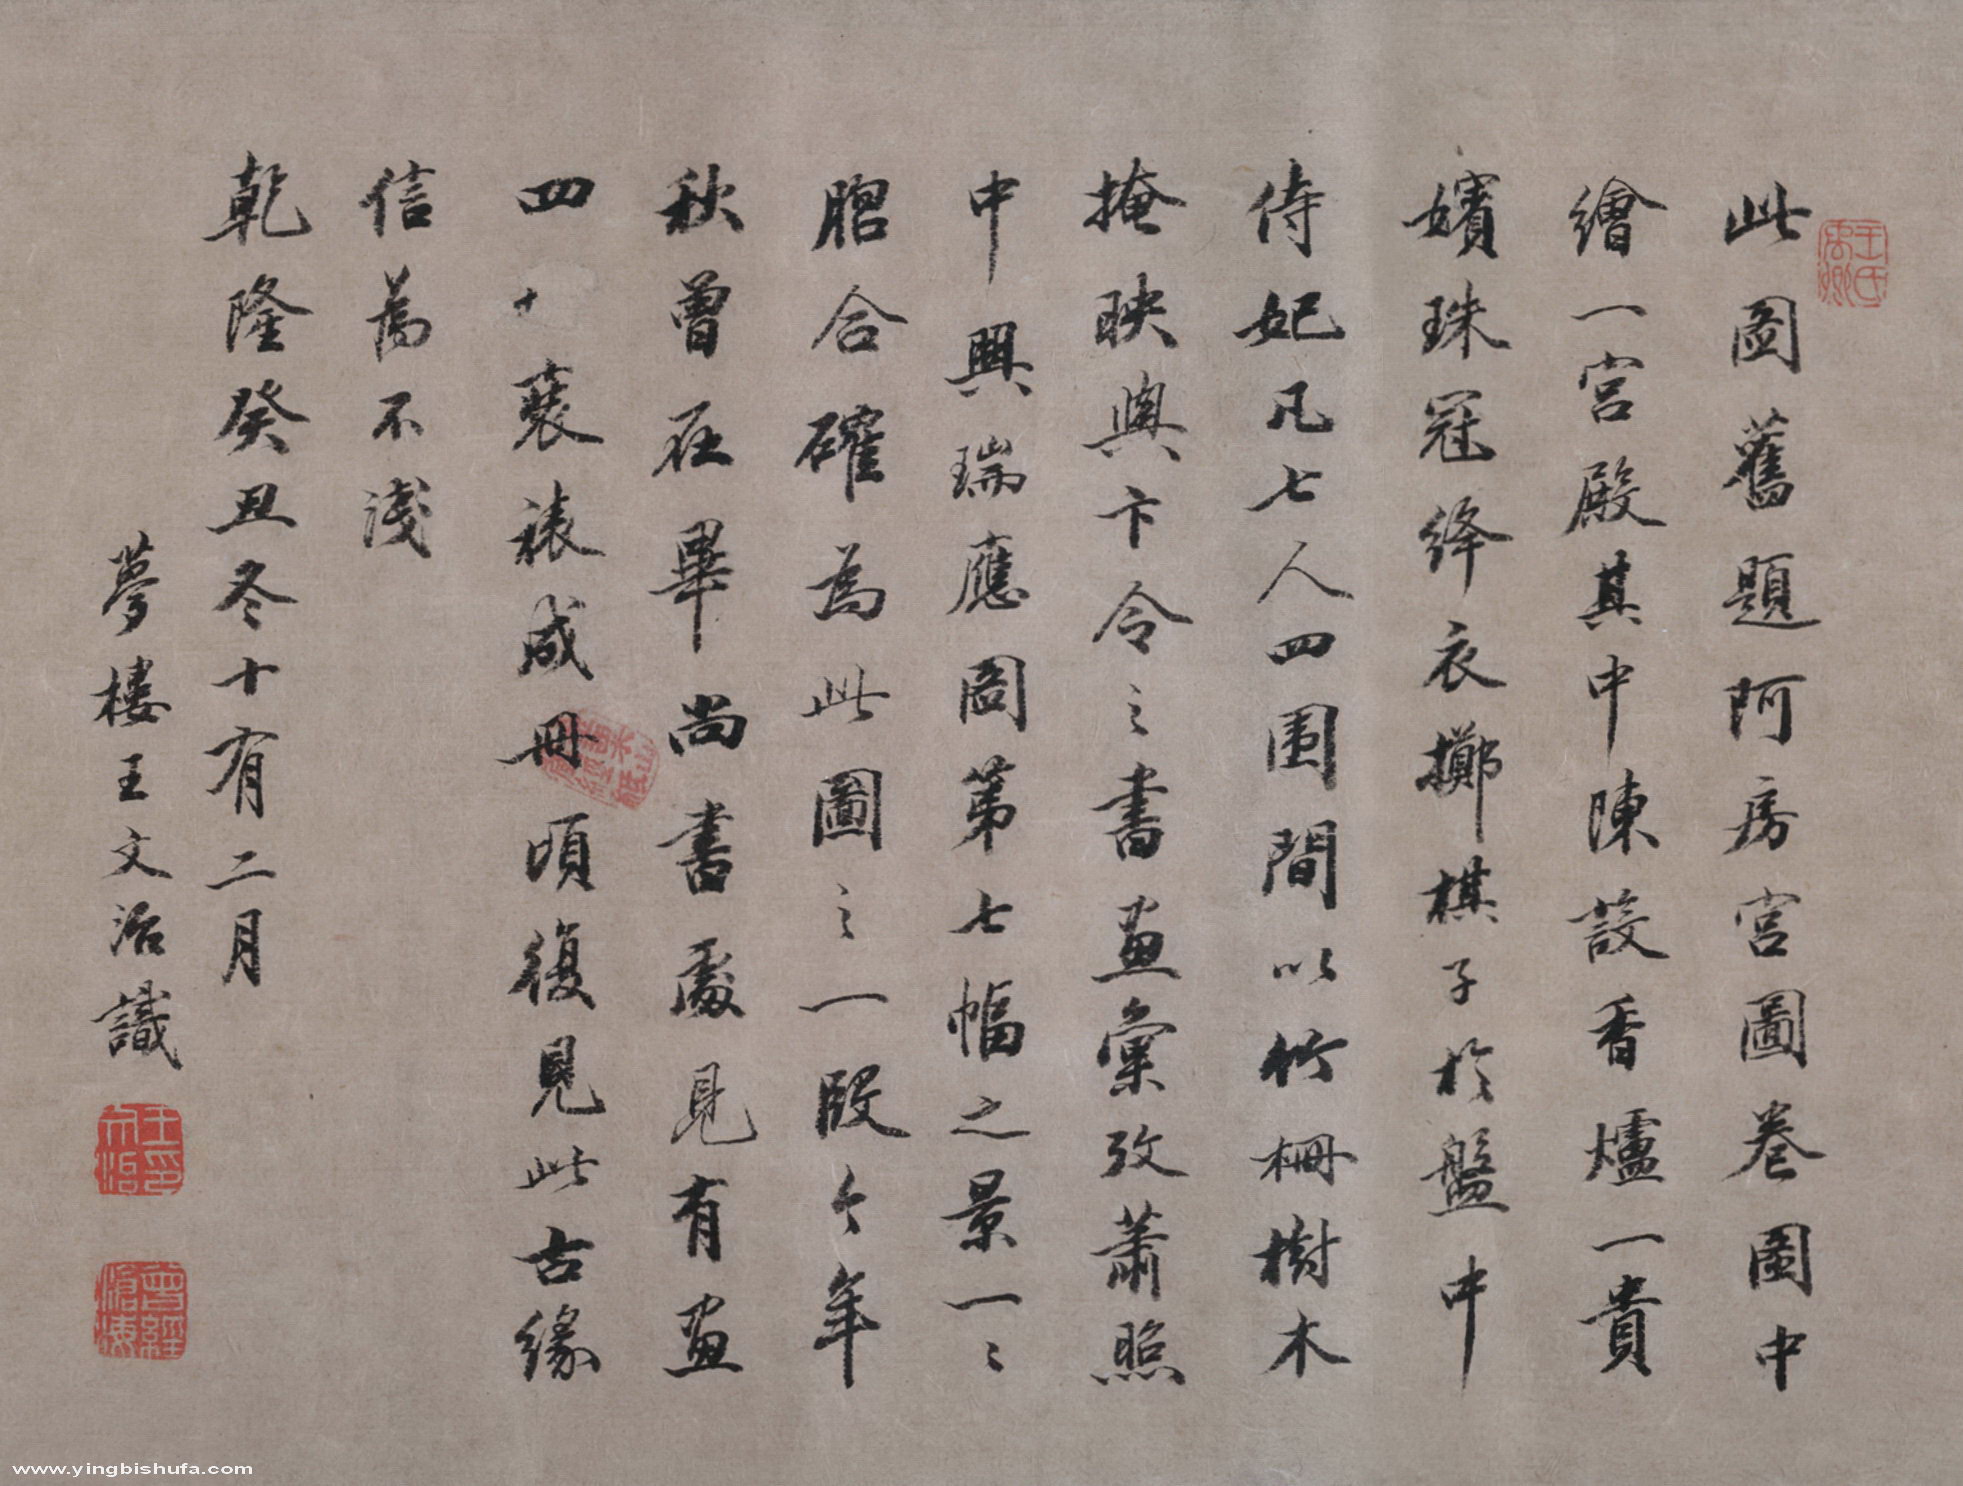 此圖舊題阿房宮圖卷圖中
繪一宮殿其中陳設香爐一貴
嬪珠冠絳衣擲棋子於盤中
侍妃凡七人四圍間以竹柵樹木
掩映與卞令之書畫彙攷蕭照
中興瑞應圖第七幅之景一〻
脗合確為此圖之一段今年
秋曾在畢尚書處見有畫
四十裘裱成冊頃復見此古緣
信為不淺
乾隆癸丑冬十有二月
夢樓王文治識
王氏禹卿
王文治印
曾經滄海
www.yingbishufa.com